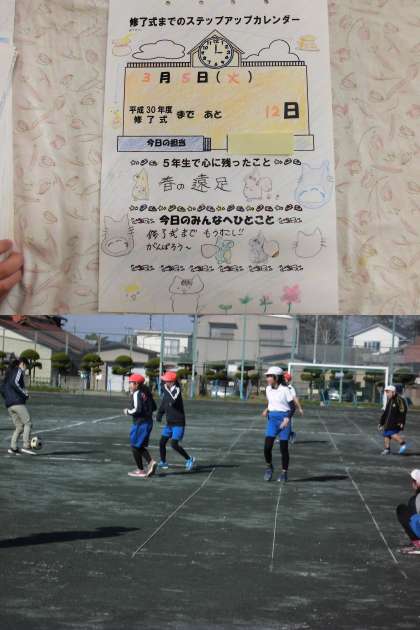 修了式までのステップアップカレンダー
3月5日(火)
平成30年度
修了式 まで あと 12日
今日の担当
5年生で心に残ったこと
春の遠足
今日のみんなへひとこと
修了式まで もう少し!!
がんばろう〜